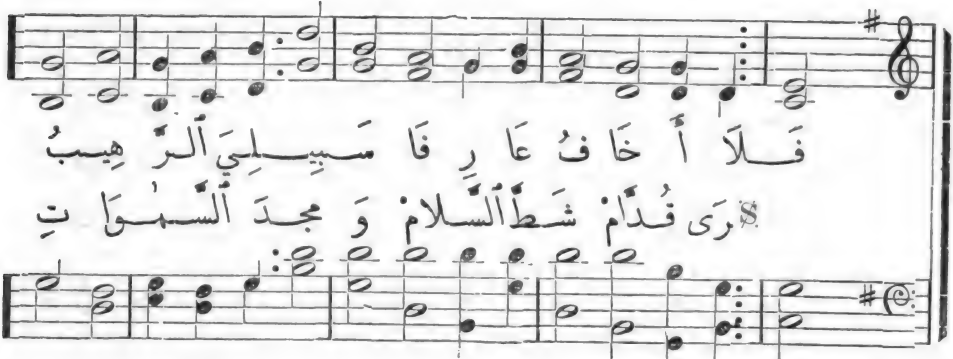 فَلاَ أَ خَا فُ عَا رِ فَا سَبِيلِيَ ٱلرَّ هِيبُ
رَى قُدَّامْ شَطَّ ٱلسَّلامْ وَ مَجدَ ٱلسَّمٰوَا تِ